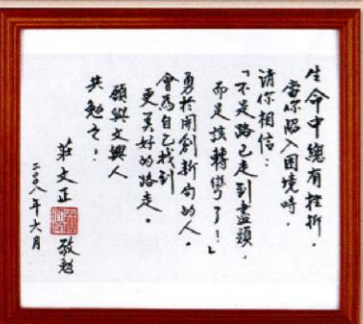 生命中總有挫折，
當你陷入困境時，
請你相信：
「不是路已走到盡頭，
而是該轉彎了！」
勇於開創新局的人，
會為自己找到
更美好的路走。
願與文興人
共勉之！
莊文正 敬勉
二○○八年六月